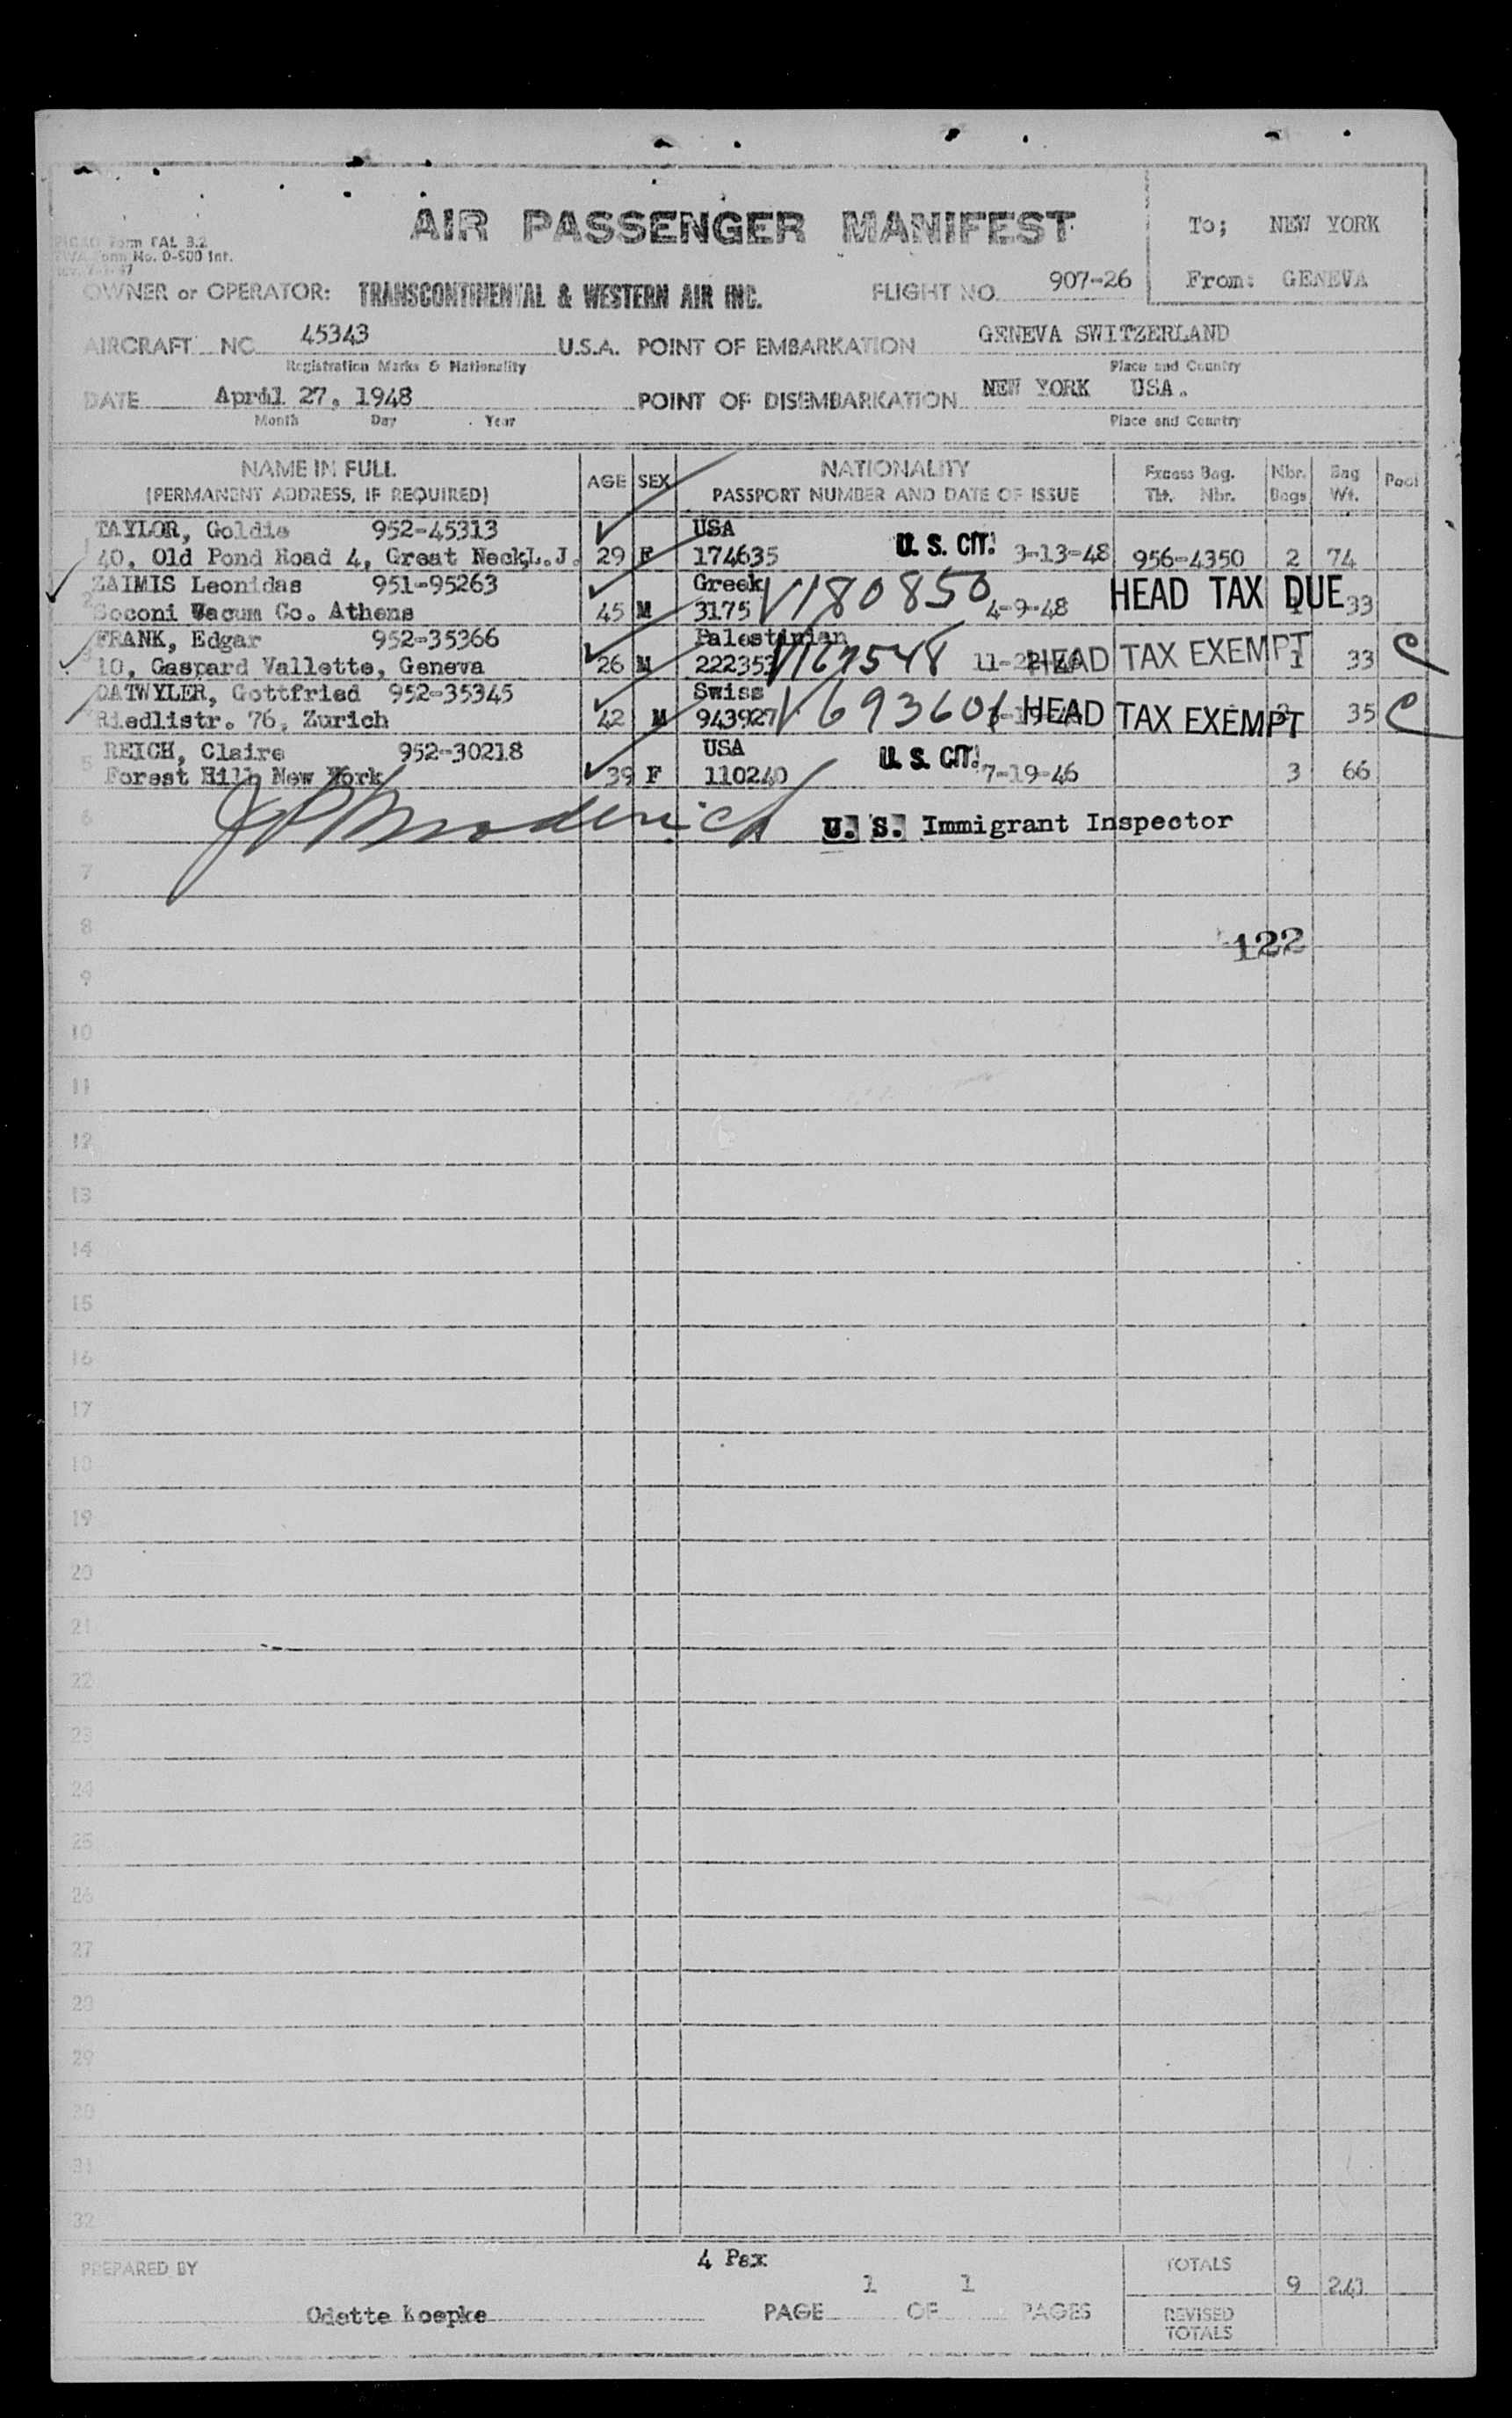 PICAO Form FAL 3.2
TWA Form No. O-500 Int.
AIR PASSENGER MANIFEST
To; NEW YORK
From: GENEVA
OWNER or OPERATOR: TRANSCONTINENTAL & WESTERN AIR INC. FLIGHT NO. 907-26
AIRCRAFT NC 45343 U.S.A. POINT OF EMBARKATION GENEVA SWITZERLAND
Registration Marks & Nationality Place and Country
DATE April 27, 1948 POINT OF DISEMBARKATION NEW YORK USA.
Month Day Year Place and Country
NAME IN FULL AGE SEX NATIONALITY Excess Bag. Nbr. Bag Pool
(PERMANENT ADDRESS, IF REQUIRED) PASSPORT NUMBER AND DATE OF ISSUE Tkt. Nbr. Bags Wt.
1 TAYLOR, Goldie 952-45313 USA
40, Old Pond Road 4, Great Neck, L.J. 29 F 174635 U. S. CIT. 3-13-48 956-4350 2 74
2 ZAIMIS Leonidas 951-95263 Greek V180850 HEAD TAX DUE
Soconi Vacum Co. Athens 45 M 3175 4-9-48 1 33
3 FRANK, Edgar 952-35366 Palestinian V167548 HEAD TAX EXEMPT C
10, Gaspard Vallette, Geneva 26 M 222353 1 33
DATWYLER, Gottfried 952-35345 Swiss V693601 HEAD TAX EXEMPT C
Riedlistr. 76, Zurich 42 M 943927 35
5 REICH, Claire 952-30218 USA U. S. CIT.
Forest Hill New York 39 F 110240 7-19-46 3 66
6 U. S. Immigrant Inspector
7
8
122
9
10
11
12
13
14
15
16
17
18
19
20
21
22
23
24
25
26
27
28
29
30
31
32
PREPARED BY 4 Pax TOTALS 9 241
Odette Koepke PAGE 1 OF 1 PAGES REVISED
TOTALS